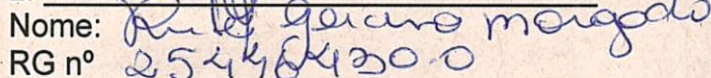 Nome: Ruth Gerano Morgado
RG nº 254464300-0